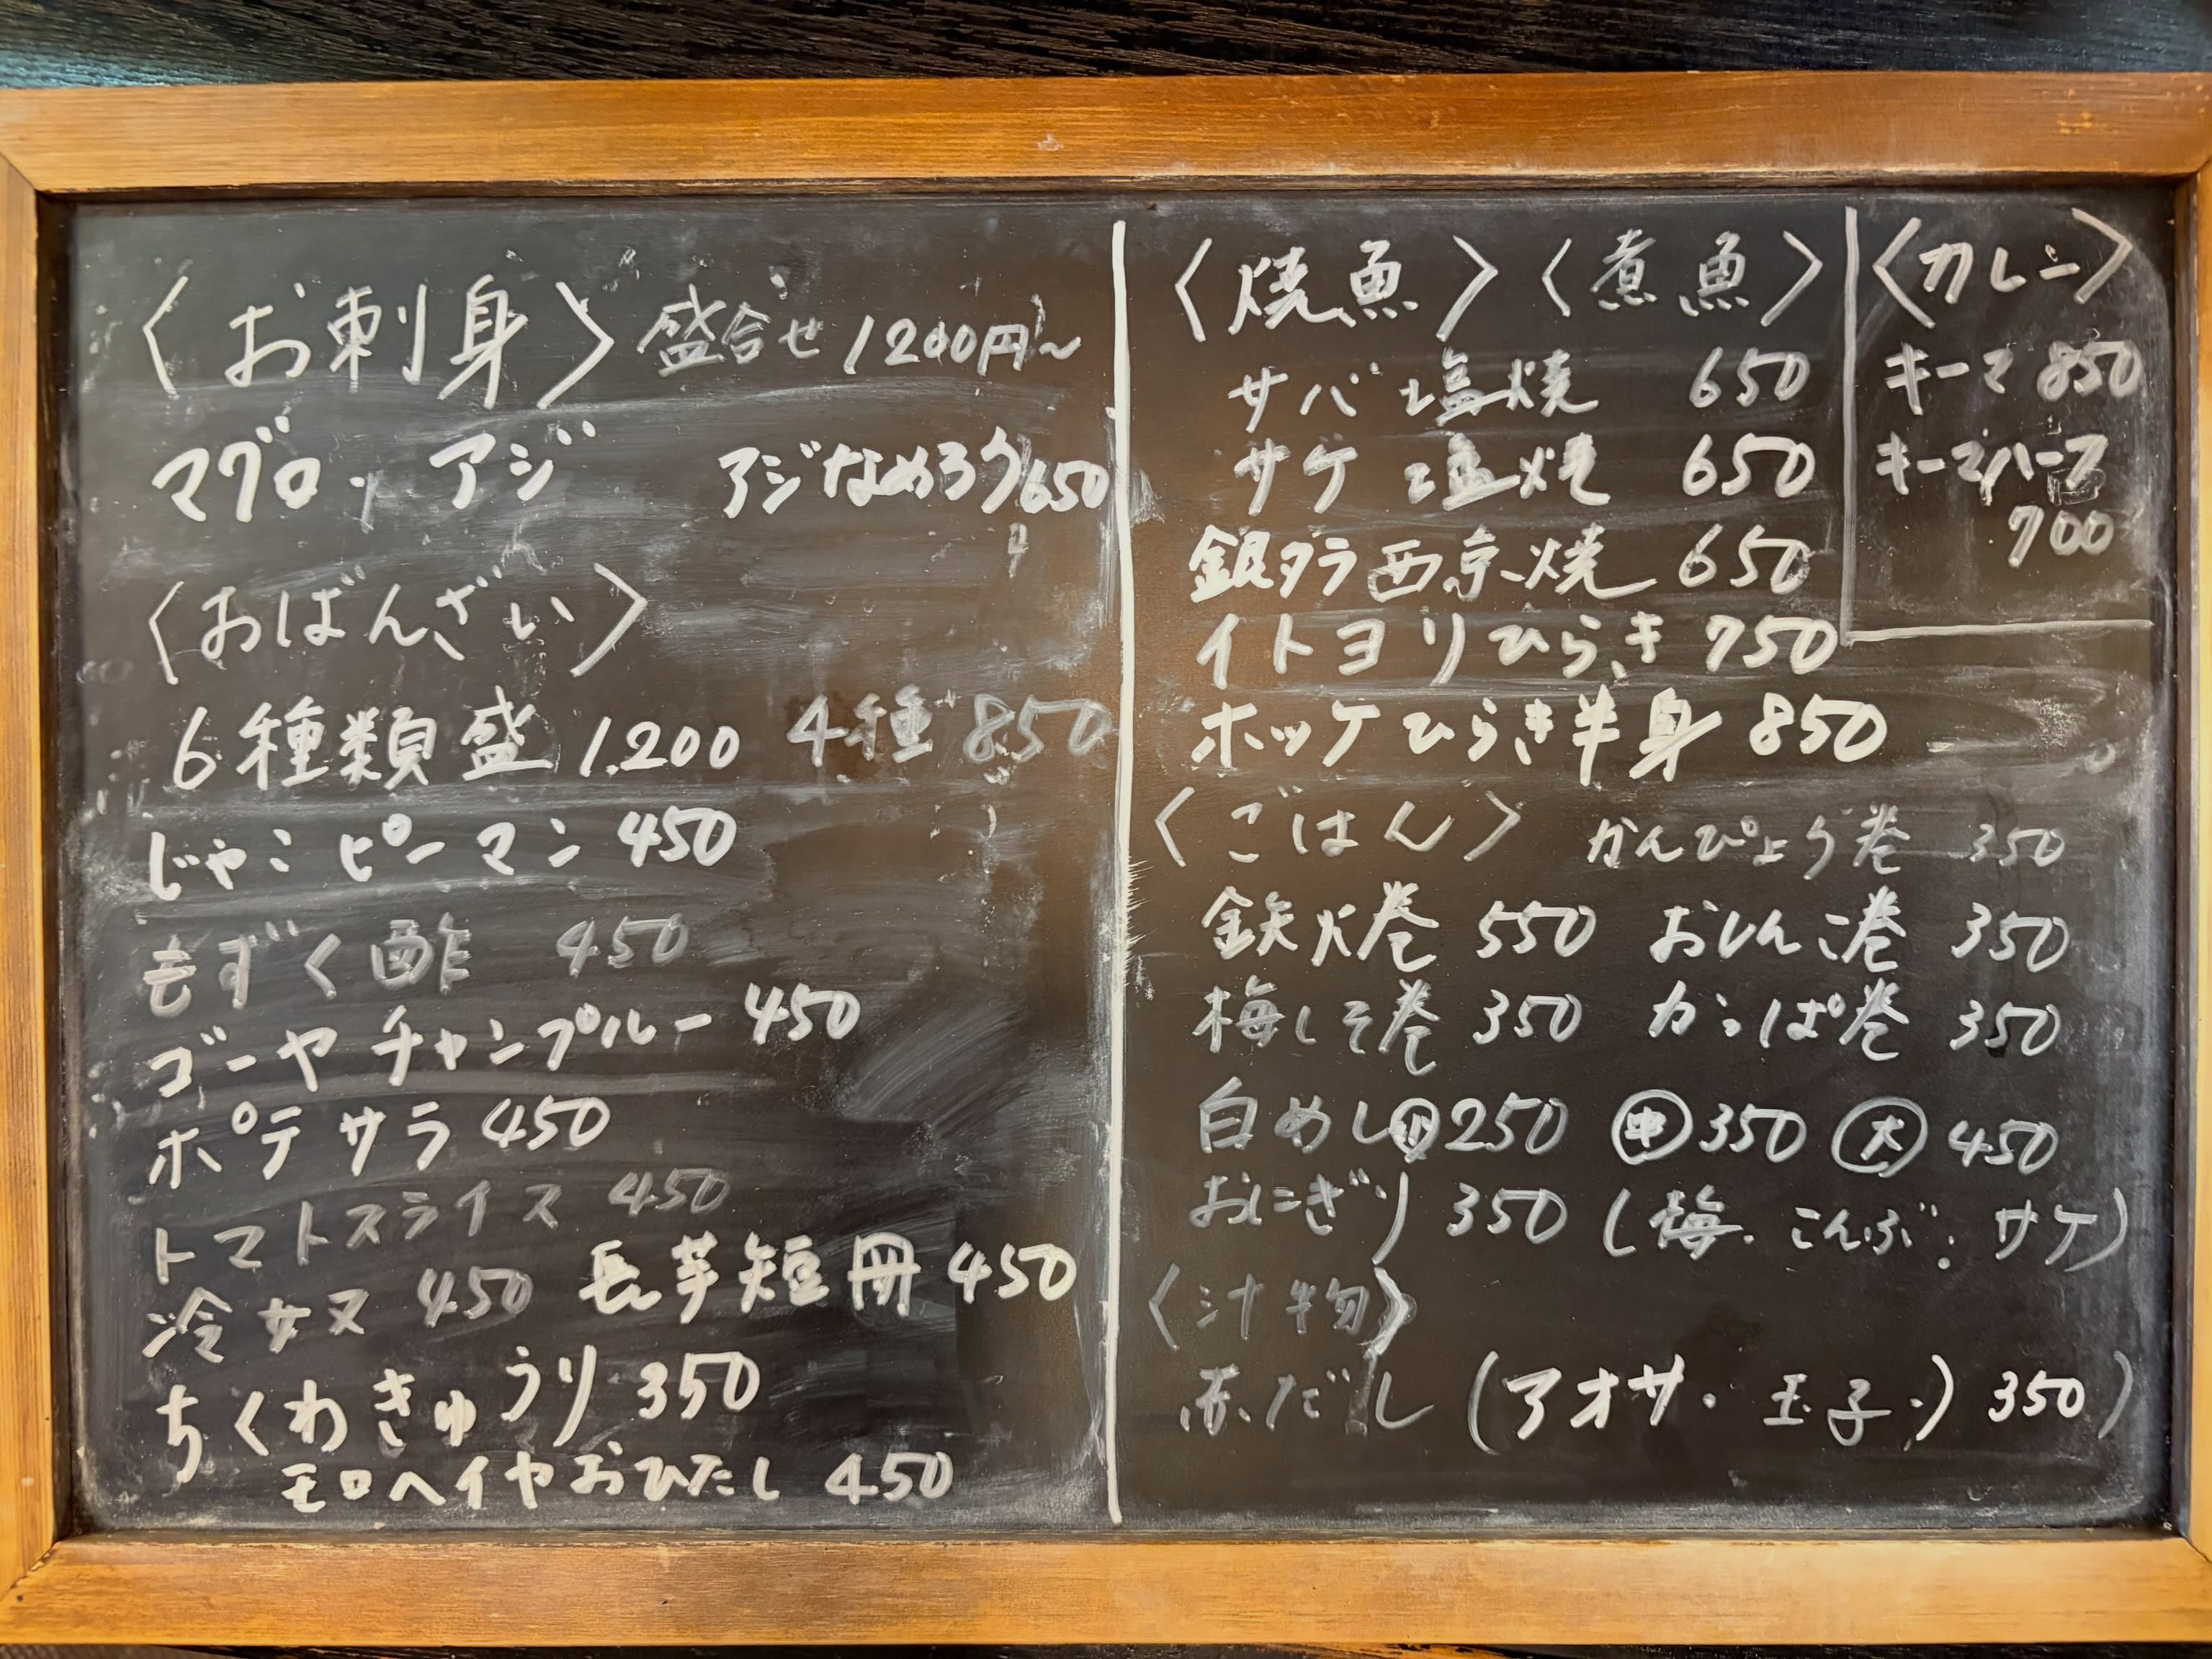 〈お刺身〉盛合せ 1200円～
マグロ・アジ アジなめろう650
〈おばんざい〉
6種類盛 1.200 4種 850
じゃこピーマン 450
もずく酢 450
ゴーヤチャンプルー 450
ポテサラ 450
トマトスライス 450
冷奴 450 長芋短冊 450
ちくわきゅうり 350
モロヘイヤおひたし 450
〈焼魚〉〈煮魚〉
サバ塩焼 650
サケ塩焼 650
銀ダラ西京焼 650
イトヨリひらき 750
ホッケひらき半身 850
〈カレー〉
キーマ 850
キーマハーフ
700
〈ごはん〉 かんぴょう巻 350
鉄火巻 550 おしんこ巻 350
梅しそ巻 350 かっぱ巻 350
白めし㊙小250 ㊥350 大 450
おにぎり 350 (梅・こんぶ・サケ)
〈汁物〉
赤だし (アオサ・玉子・) 350)